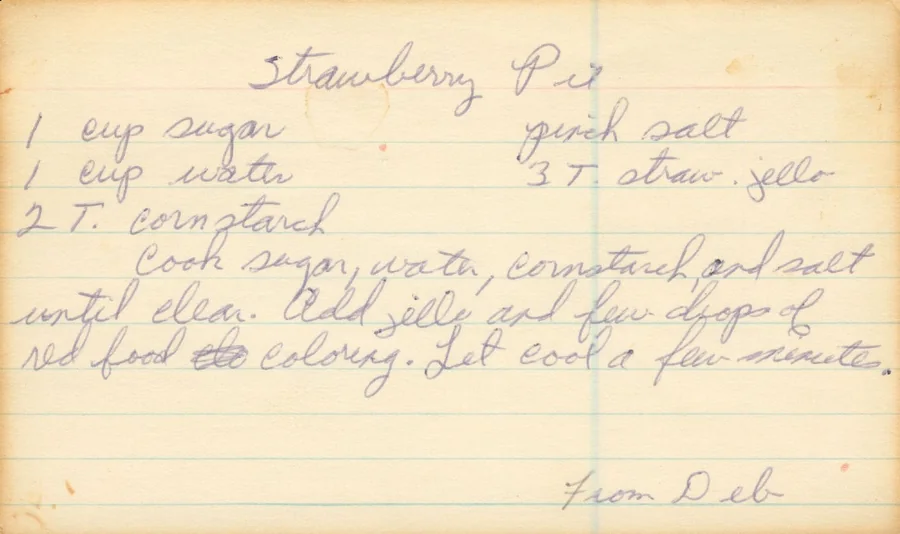 Strawberry Pie
1 cup sugar pinch salt
1 cup water 3 T. straw. jello
2 T. cornstarch
Cook sugar, water, cornstarch, and salt
until clear. Add jello and few drops of
red food coloring. Let cool a few minutes.
From Deb